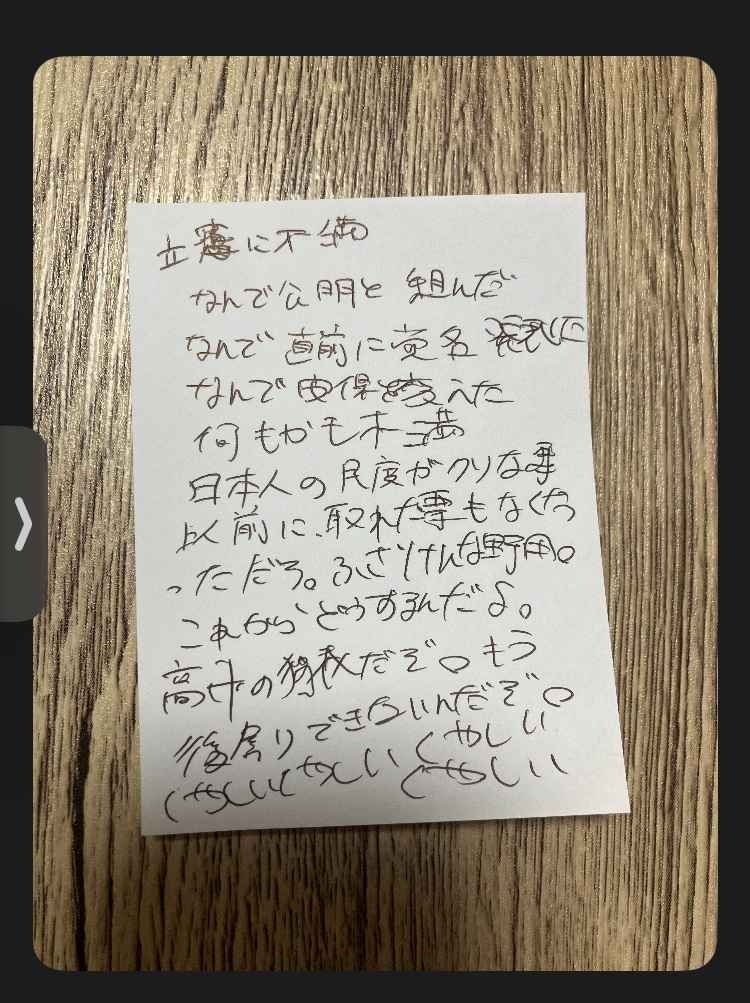 立憲に不満
なんで公明と組んだ
なんで直前に党名発表した
なんで安保を変えた
何もかも不満
日本人の民度がクソな事
以前に、取れた事もなくなっ
っただろ。ふざけんな野田。
これからどうするんだよ。
高市の独裁だぞ。もう
後戻りできないんだぞ。
くやしいくやしい くやしい
くやしい